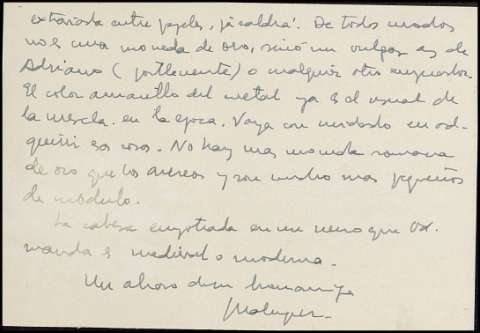 extraviada entre papeles, ya saldrá. De todos modos
no es una moneda de oro, sinó un vulgar as de
Adriano ( ) o cualquier otro emperador.
El color amarillo del metal ya es el usual de
la mezcla en la época. Vaya con cuidado en ad-
quirir esas cosas. No hay mas moneda romana
de oro que los aureos y son mucho mas pequeños
de módulo.
La cabeza en un que Vd.
manda es medieval o moderna.
Un abrazo de su buen amigo